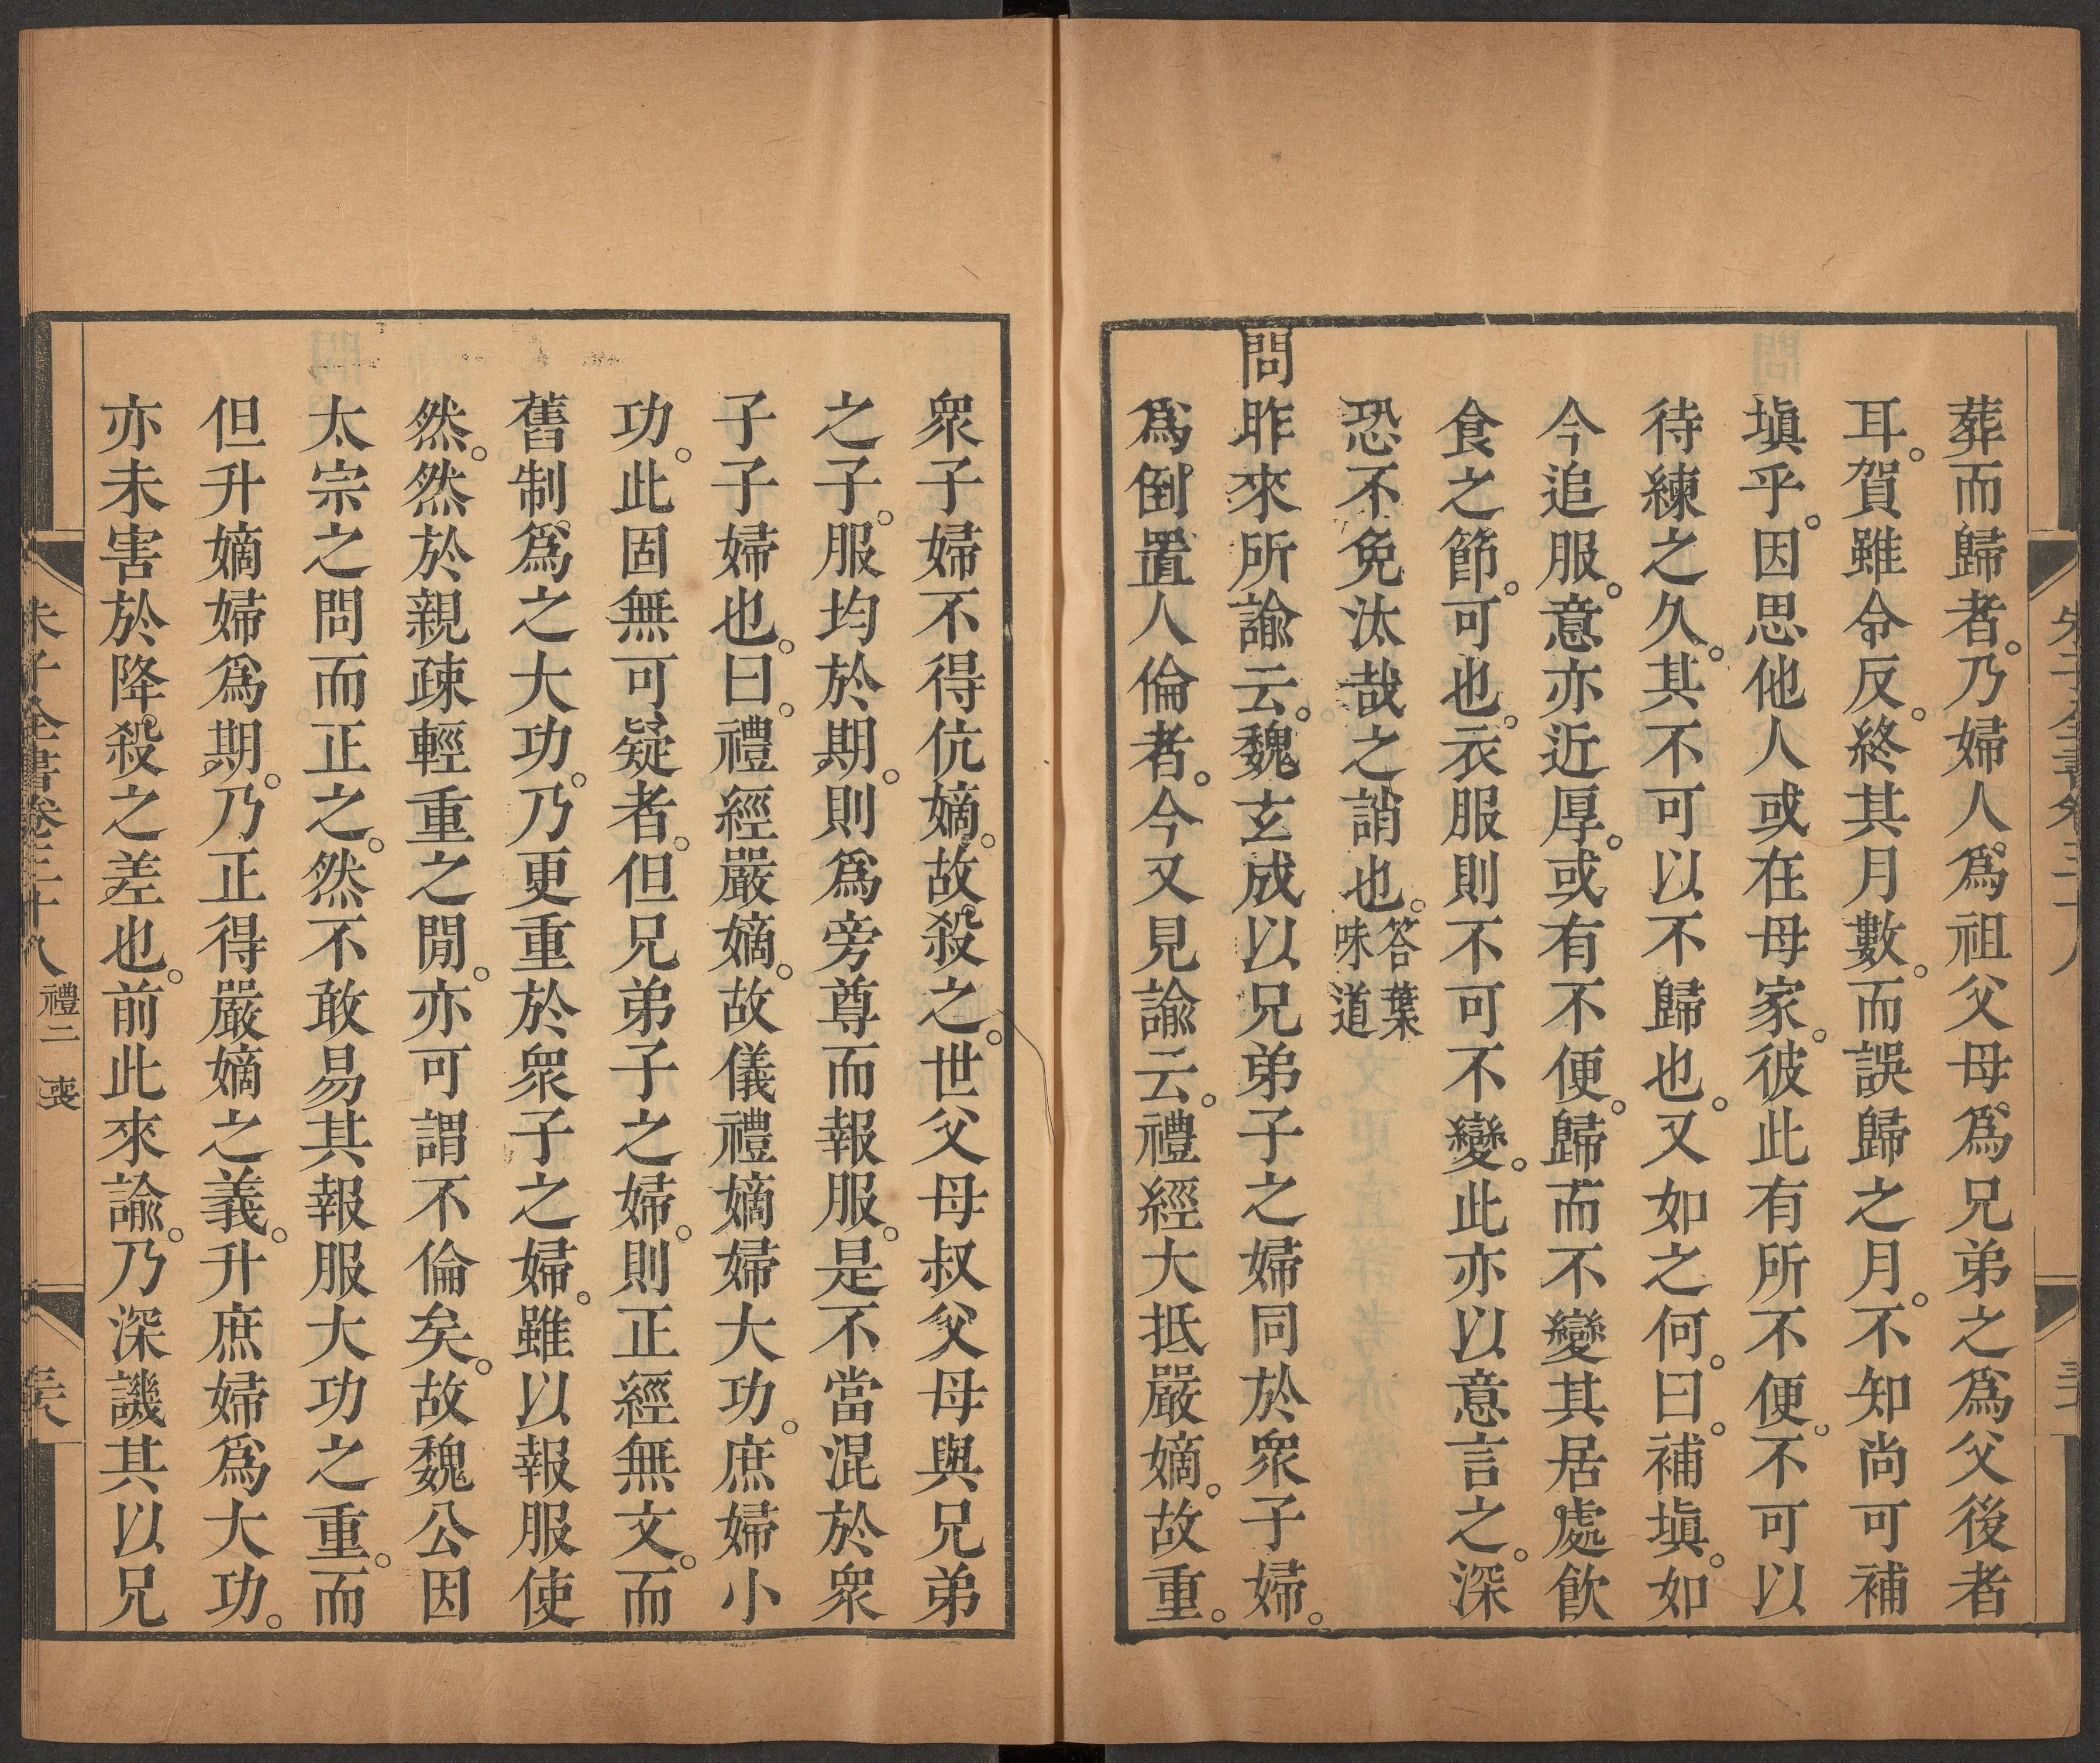 葬而歸者。乃婦人爲祖父母爲兄弟之爲父後者
耳。賀雖令反。終其月數。而誤歸之月。不知尚可補
塡乎。因思他人或在母家。彼此有所不便。不可以
待練之久。其不可以不歸也。又如之何。曰。補塡。如
今追服。意亦近厚。或有不便。歸而不變其居處飮
食之節。可也。衣服則不可不變。此亦以意言之。深
恐不免汰哉之誚也。答葉味道
問昨來所諭云。魏玄成以兄弟子之婦同於衆子婦。
爲倒置人倫者。今又見諭云。禮經大抵嚴嫡。故重。
衆子婦不得伉嫡。故殺之。世父母叔父母與兄弟
之子。服均於期。則爲旁尊而報服。是不當混於衆
子子婦也。曰。禮經嚴嫡。故儀禮嫡婦大功。庶婦小
功。此固無可疑者。但兄弟子之婦。則正經無文。而
舊制。爲之大功。乃更重於衆子之婦。雖以報服使
然。然於親疎輕重之閒。亦可謂不倫矣。故魏公因
太宗之問而正之。然不敢易其報服大功之重。而
但升嫡婦爲期。乃正得嚴嫡之義。升庶婦爲大功。
亦未害於降殺之差也。前此來諭。乃深譏其以兄
朱子全書卷三十八 禮二 喪